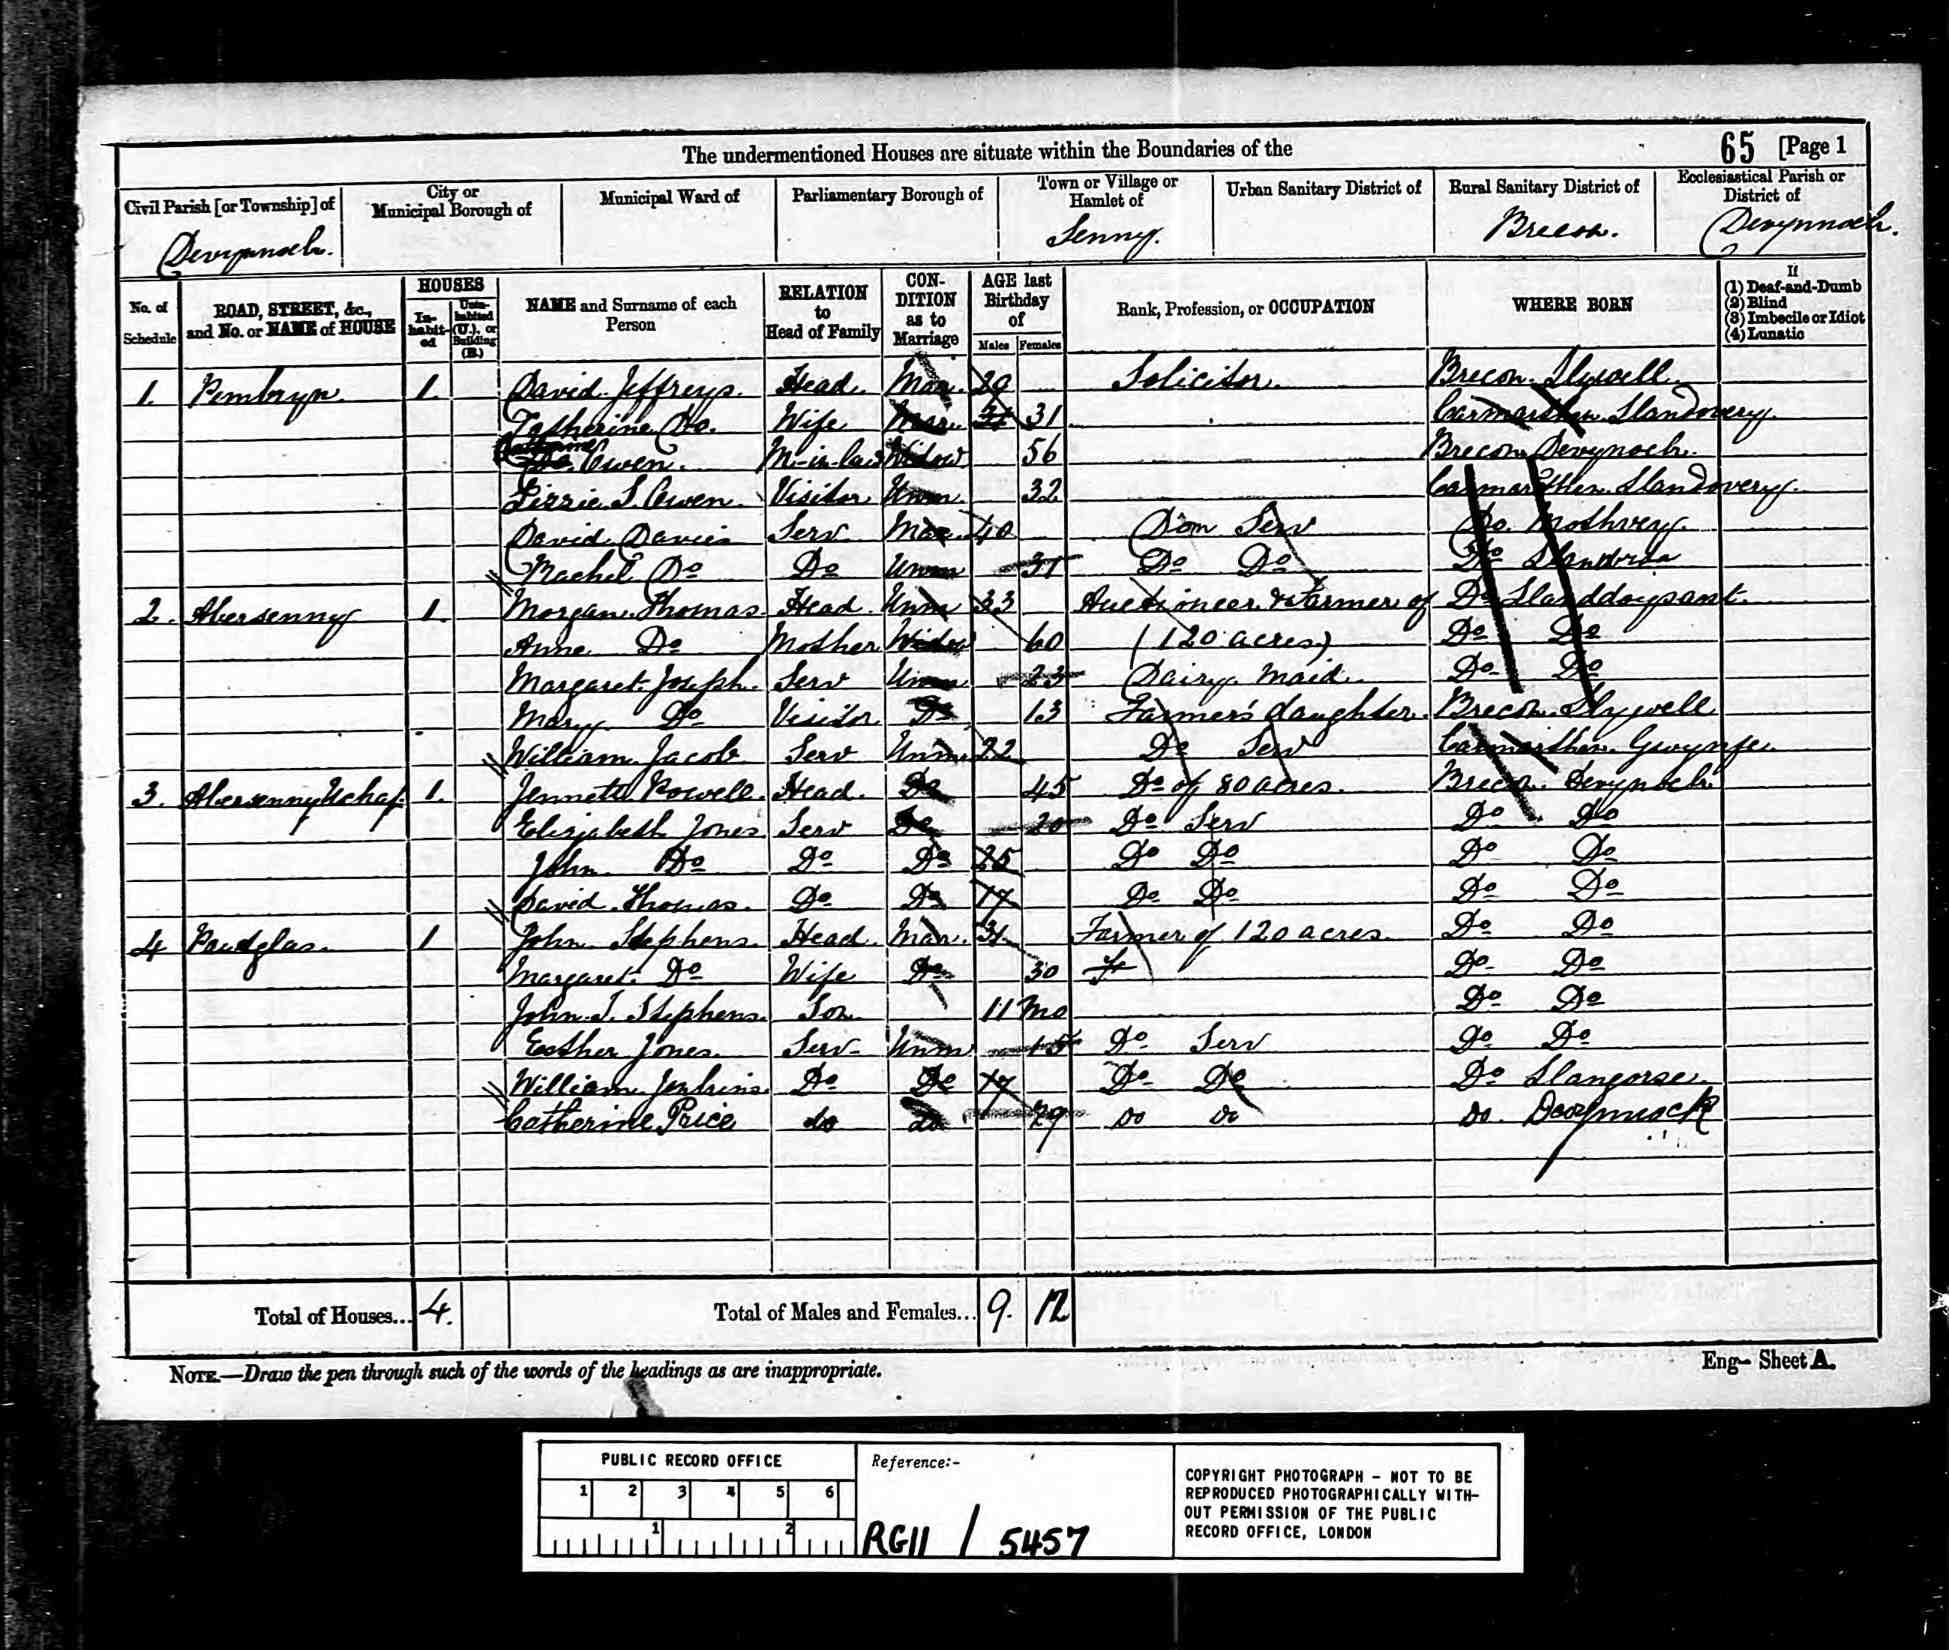 The undermentioned Houses are situate within the Boundaries of the 65 [Page 1
Civil Parish [or Township] of City or Municipal Borough of Municipal Ward of Parliamentary Borough of Town or Village or Hamlet of Urban Sanitary District of Rural Sanitary District of Ecclesiastical Parish or District of
Devynnock. Senny. Brecon. Devynnock.
No. of Schedule ROAD, STREET, &c., and No. or NAME of HOUSE HOUSES Inhabited Uninhabited (U.), or Building (B.) NAME and Surname of each Person RELATION to Head of Family CONDITION as to Marriage AGE last Birthday of Males Females Rank, Profession, or OCCUPATION WHERE BORN If (1) Deaf-and-Dumb (2) Blind (3) Imbecile or Idiot (4) Lunatic
1. Penbryn 1. David Jeffreys. Head. Mar. 29 Solicitor. Brecon. Llywell
Catherine Do. Wife Mar. 31 31 Carmarthen Llandovery.
Do. Owen. M-in-law Widow 56 Brecon Devynock.
Lizzie S. Owen. Visitor Unm 32 Carmarthen Llandovery.
David Davies Serv Mar. 40 Dom Serv Do. Mothvey.
Rachel Do Do Unm 31 Do Do Do
2. Abersenny 1. Morgan Thomas. Head. Unm 33 Auctioneer & Farmer of Do Llanddoysant.
Anne Do Mother Widow 60 (120 acres) Do Do
Margaret Joseph. Serv Unm 23 Dairy Maid. Do Do
Mary Do Visitor Do 13 Farmer's daughter. Brecon. Llywell
William Jacob Serv Unm. 22 Do Serv Carmarthen. Gwynfe.
3. Abersenny Uchaf. 1. Jennett Powell. Head. Do 45 Do of 80 acres. Brecon. Devynock.
Elizabeth Jones Serv Do 20 Do Serv Do Do
John Do Do Do 25 Do Do Do Do
David Thomas. Do Do 17 Do Do Do Do
4 Pantglas. 1 John Stephens. Head. Mar. 31 Farmer of 120 acres. Do Do
Margaret. Do Wife Do 30 Do Do
John T. Stephens. Son 11 Mo Do Do
Esther Jones. Serv Unm 15 Do Serv Do Do
William Jenkins. Do Do 17 Do Do Do Llangorse.
Catherine Price do do 29 do do do. Devynnock
Total of Houses... 4. Total of Males and Females... 9. 12
NOTE.—Draw the pen through such of the words of the headings as are inappropriate. Eng— Sheet A.
PUBLIC RECORD OFFICE
1 2 3 4 5 6
1 2
Reference:-
RG11 / 5457
COPYRIGHT PHOTOGRAPH - NOT TO BE
REPRODUCED PHOTOGRAPHICALLY WITH-
OUT PERMISSION OF THE PUBLIC
RECORD OFFICE, LONDON